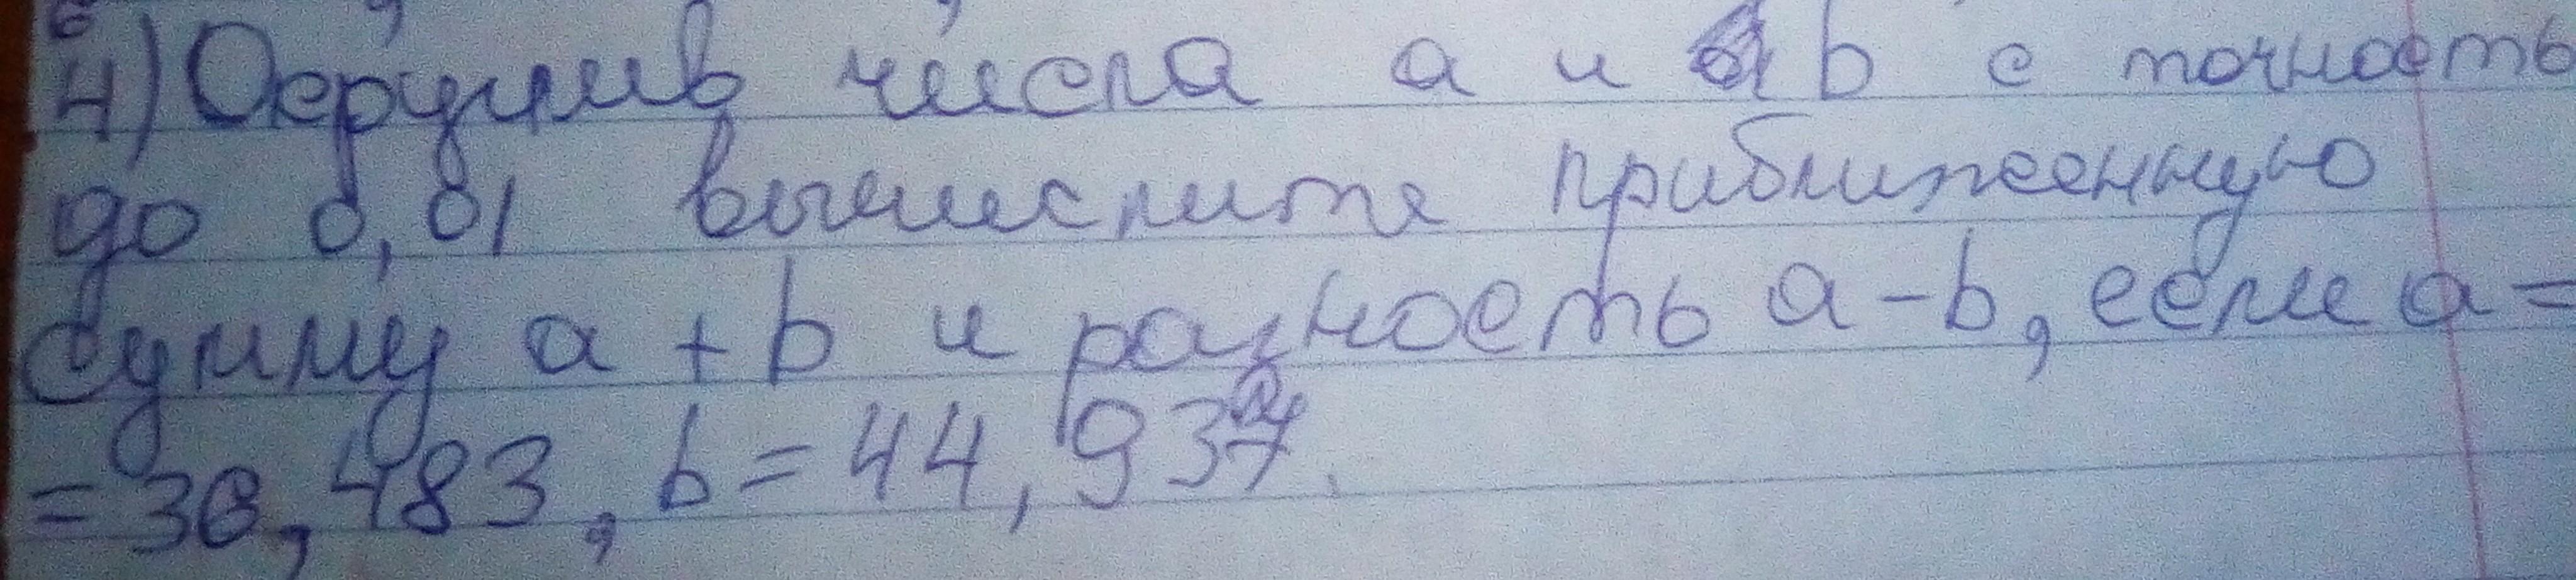 4) Округлив числа a и b с точность
до 0,01 вычислите приближенную
сумму a + b и разность a - b, если a =
= 36,483, b = 44,937.